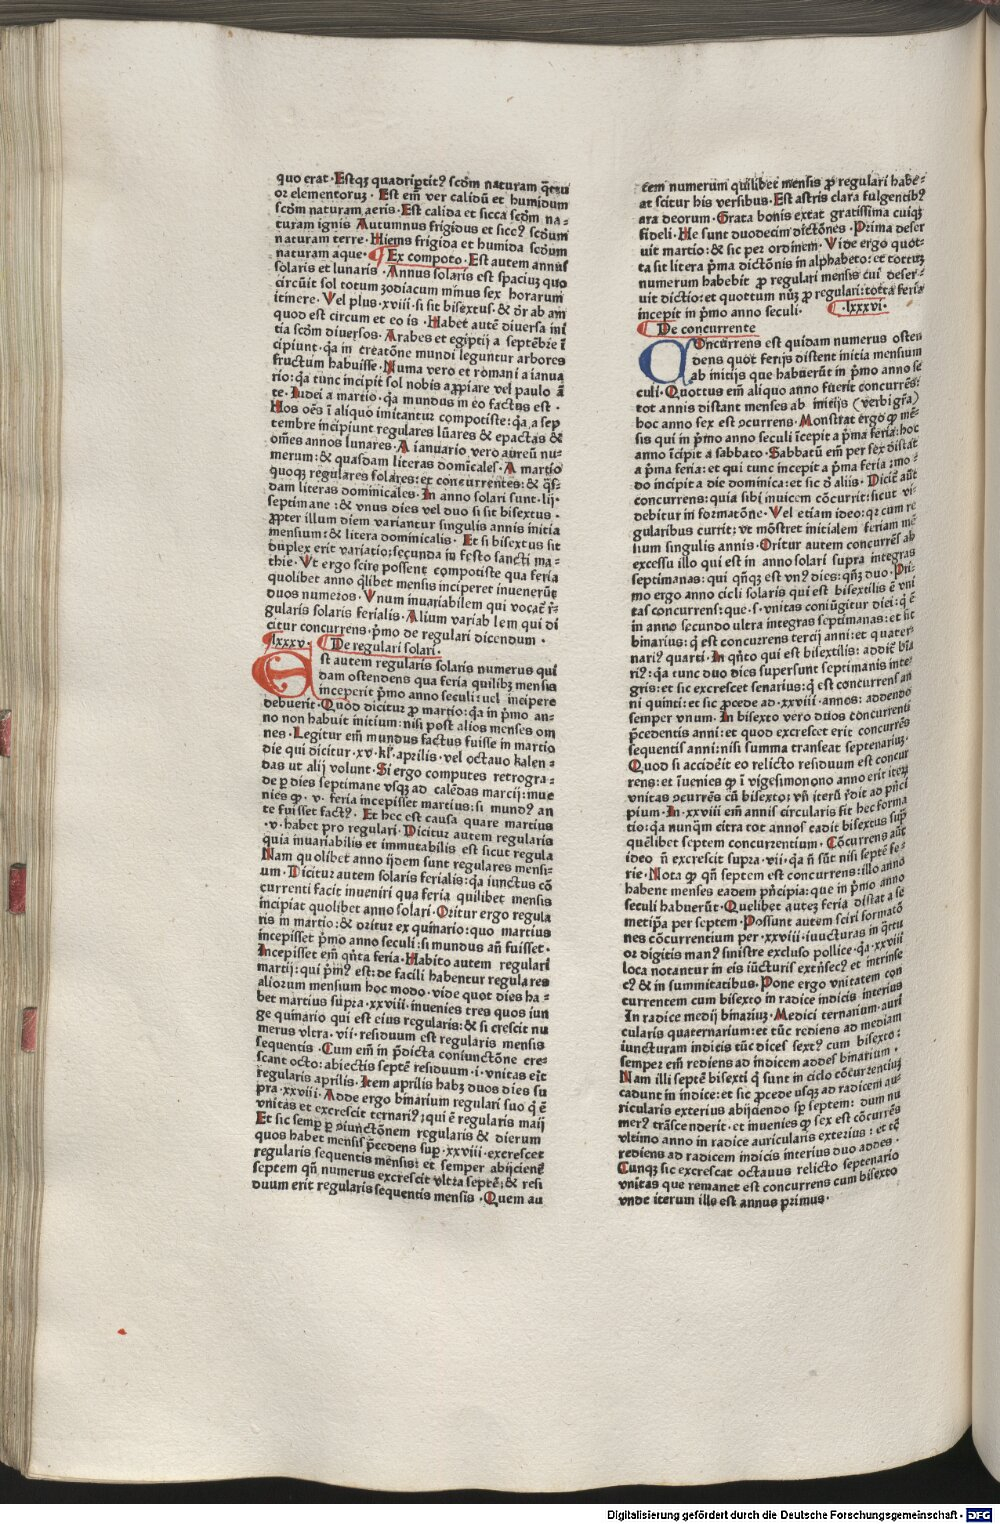 quo erat. Estqꝫ quadriꝑtitꝰ scd̄m naturam q̄ttu
or elementoruꝫ. Est em̄ ver calidū et humidum
scd̄m naturam aeris. Est calida et sicca scd̄m na⸗
turam ignis Autumnus frigidus et siccꝰ scd̄um
naturam terre. Hiems frigida et humida scd̄um
naturam aque. ¶ Ex compoto. Est autem annus
solaris et lunaris. Annus solaris est spaciuꝫ quo
circūit sol totum zodiacum minus sex horarum
itinere. Vel plus .xviii. si sit bisextus. & dr̄ ab am
quod est circum et eo is. Habet autē diuersa ini
tia scd̄m diuersos. Arabes et egiptij a septēbre ī
cipiunt. q̄a in creatōne mundi leguntur arbores
fructum habuisse. Numa vero et romani a ianua
rio: q̄a tunc incipit sol nobis aꝓpiare vel paulo ā
te. Iudei a martio. q̄a mundus in eo factus est.
Hos oēs ī aliquo imitantur compotiste: q̄a a sep
tembre incipiunt regulares lūares & epactas &
om̄es annos lunares. A ianuario vero aureū nu⸗
merum: & quasdam literas domīcales. A martio
quoqꝫ regulares solares: et concurrentes: & q̄s⸗
dam literas dominicales. In anno solari sunt .lij.
septimane: & vnus dies vel duo si sit bisextus.
ꝓpter illum diem variantur singulis annis initia
mensium: & litera dominicalis. Et si bisextus sit
duplex erit variatio; secunda in festo sancti ma⸗
thie. Vt ergo scire possent compotiste qua feria
quolibet anno q̄libet mensis inciperet inuenerūt
duos numeros. Vnum inuariabilem qui vocat̄ r̄⸗
gularis solaris ferialis. Alium variab lem qui di
citur concurrens. p̄mo de regulari dicendum.
.lxxxv. ¶ De regulari solari.
Est autem regularis solaris numerus qui
dam ostendens qua feria quilibꝫ mensis
inceperit p̄mo anno seculi: uel incipere
debuerit. Quod dicitur ꝓ martio: q̄a in p̄mo an⸗
no non habuit initium: nisi post alios menses om
nes. Legitur em̄ mundus factus fuisse in martio
die qui dicitur .xv. kl̄. aprilis. vel octauo kalen⸗
das ut alij volunt. Si ergo computes retrogra⸗
de ꝑ dies septimane vsqꝫ ad calēdas marcij: inue
nies ꝙ .v. feria incepisset martius: si mundꝰ an
te fuisset factꝰ. Et hec est causa quare martius
.v. habet pro regulari. Dicitur autem regularis
quia inuariabilis et immutabilis est sicut regula
Nam quolibet anno ijdem sunt regulares mensi⸗
um. Dicitur autem solaris ferialis: q̄a iunctus cō
currenti facit inueniri qua feria quilibet mensis
incipiat quolibet anno solari. Oritur ergo regula
ris in martio: & oritur ex quinario: quo martius
incepisset p̄mo anno seculi: si mundus añ fuisset.
Incepisset em̄ q̄nta feria. Habito autem regulari
martij: qui p̄mꝰ est: de facili habentur regulares
aliorum mensium hoc modo. vide quot dies ha⸗
bet martius supra .xxviii. inuenies tres quos iun
ge quinario qui est eius regularis: & si crescit nu
merus vltra .vii. residuum est regularis mensis
sequentis. Cum em̄ in p̄dicta coniunctōne cre⸗
scant octo: abiectis septē residuum .i. vnitas erit
regularis aprilis. Item aprilis habꝫ duos dies su
pra .xxviii. Adde ergo binarium regulari suo q̄ ē
vnitas et excrescit ternariꝰ; qui ē regularis maij
Et sic semꝑ ꝑ ꝯiunctōnem regularis & dierum
quos habet mensis p̄cedens suꝑ .xxviii. excrescet
regularis sequentis mensis: et semper abijcienꝭ
septem qn̄ numerus excrescit vltra septē; & resi
duum erit regularis sequentis mensis. Quem au
tem numerum quilibet mensis ꝓ regulari habe⸗
at scitur his versibus. Est astris clara fulgentibꝰ
ara deorum. Grata bonis extat gratissima cuiqꝫ
fideli. He sunt duodecim dictōnes. Prima deser
uit martio: & sic per ordinem. Vide ergo quot⸗
ta sit litera p̄ma dictōnis in alphabeto: et tottuꝫ
numerum habebit ꝓ regulari mensis cui deser⸗
uit dictio: et quottum nūꝫ ꝓ regulari: totta feria
incepit in p̄mo anno seculi. .lxxxvi.
¶ De concurrente
Concurrens est quidam numerus osten
dens quot ferijs distent initia mensium
ab initijs que habuerūt in p̄mo anno se
culi. Quottus em̄ aliquo anno fuerit concurrēs:
tot annis distant menses ab initijs (verbi gr̄a)
hoc anno sex est ꝯcurrens. Monstrat ergo ꝙ mē⸗
sis qui in p̄mo anno seculi īcepit a p̄ma feria: hoc
anno īcipit a sabbato. Sabbatū em̄ per sex distat
a p̄ma feria: et qui tunc incepit a p̄ma feria: mo⸗
do incipit a die dominica: et sic d̄ aliis. Diciť aūt
concurrens: quia sibi inuicem cōcurrit: sicut vi⸗
debitur in formatōne. Vel etiam ideo: qꝛ cum re
gularibus currit: vt mōstret initialem feriam mē
sium singulis annis. Oritur autem concurrēs ab
excessu illo qui est in anno solari supra integras
septimanas: qui qn̄qꝫ est vnꝰ dies: qn̄ꝫ duo. Pri⸗
mo ergo anno cicli solaris qui est bisextilis ē vni
tas concurrens: que .s. vnitas coniūgitur diei: q̄ ē
in anno secundo ultra integras septimanas: et fit
binarius: q̄ est concurrens tercij anni: et quater
nariꝰ quarti. In q̄nto qui est bisextilis: addiť bīa
riꝰ: q̄a tunc duo dies supersunt septimanis inte⸗
gris: et sic excrescet senarius: q̄ est concurrens an
ni quinti: et sic ꝓcede ad .xxviii. annos: addendo
semper vnum. In bisexto vero duos concurrenti
p̄cedentis anni: et quod excrescet erit concurrēs
sequentis anni: nisi summa transeat septenariuꝫ.
Quod si acciderit eo relicto residuum est concur
rens: et īuenies ꝙ ī vigesimonono anno erit iteꝝ
vnitas ꝯcurrēs cū bisexto; vn̄ iterū r̄dit ad pn̄ci
pium. In .xxviii em̄ annis circularis fit hec forma
tio: q̄a nunq̄m citra tot annos cadit bisextus suꝑ
quēlibet septem concurrentium. Cōcurrens aūt
ideo n̄ excrescit supra .vii. q̄a n̄ sūt nisi septē fe⸗
rie. Nota ꝙ qn̄ septem est concurrens: illo anno
habent menses eadem pn̄cipia: que in p̄mo anno
seculi habuerūt. Quelibet auteꝫ feria distat a se
metip̄a per septem. Possunt autem sciri formatō
nes cōcurrentium per .xxviii. iuncturas in q̄ttu
or digitis manꝰ sinistre excluso pollice. q̄a .xxviii
loca notantur in eis iūcturis extrīsecꝰ et intrinse
cꝰ & in summitatibus. Pone ergo vnitatem con
currentem cum bisexto in radice indicis interius
In radice medij binariuꝫ. Medici ternarium. auri
cularis quaternarium: et tūc rediens ad mediam
iuncturam indicis tūc dices sextꝰ cum bisexto:
semper em̄ rediens ad indicem addes binarium.
Nam illi septē bisexti q̄ sunt in ciclo cōcurrentiuꝫ
cadunt in indice: et sic ꝓcede usqꝫ ad radicem au⸗
ricularis exterius abijciendo sꝑ septem: dum nu
merꝰ trāscenderit. et inuenies ꝙ sex est cōcurrēs
vltimo anno in radice auricularis exterius: et tē
rediens ad radicem indicis interius duo addes.
Cunqꝫ sic excrescat octauus relicto septenario
vnitas que remanet est concurrens cum bisexto
vnde iterum ille est annus primus.
Digitalisierung gefördert durch die Deutsche Forschungsgemeinschaft - DFG